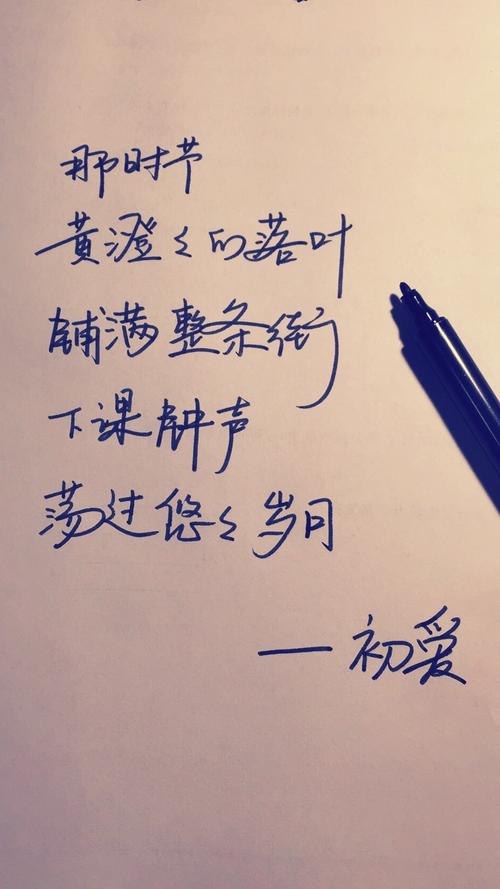 那时节
黄澄々的落叶
铺满整条街
下课钟声
荡过悠々岁月
——初爱